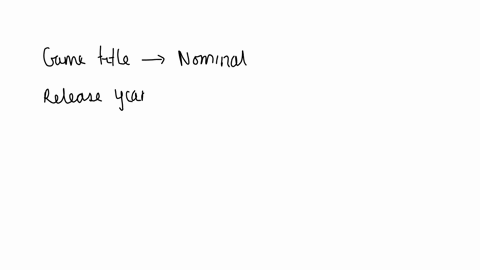 Game title → Nominal
Release year